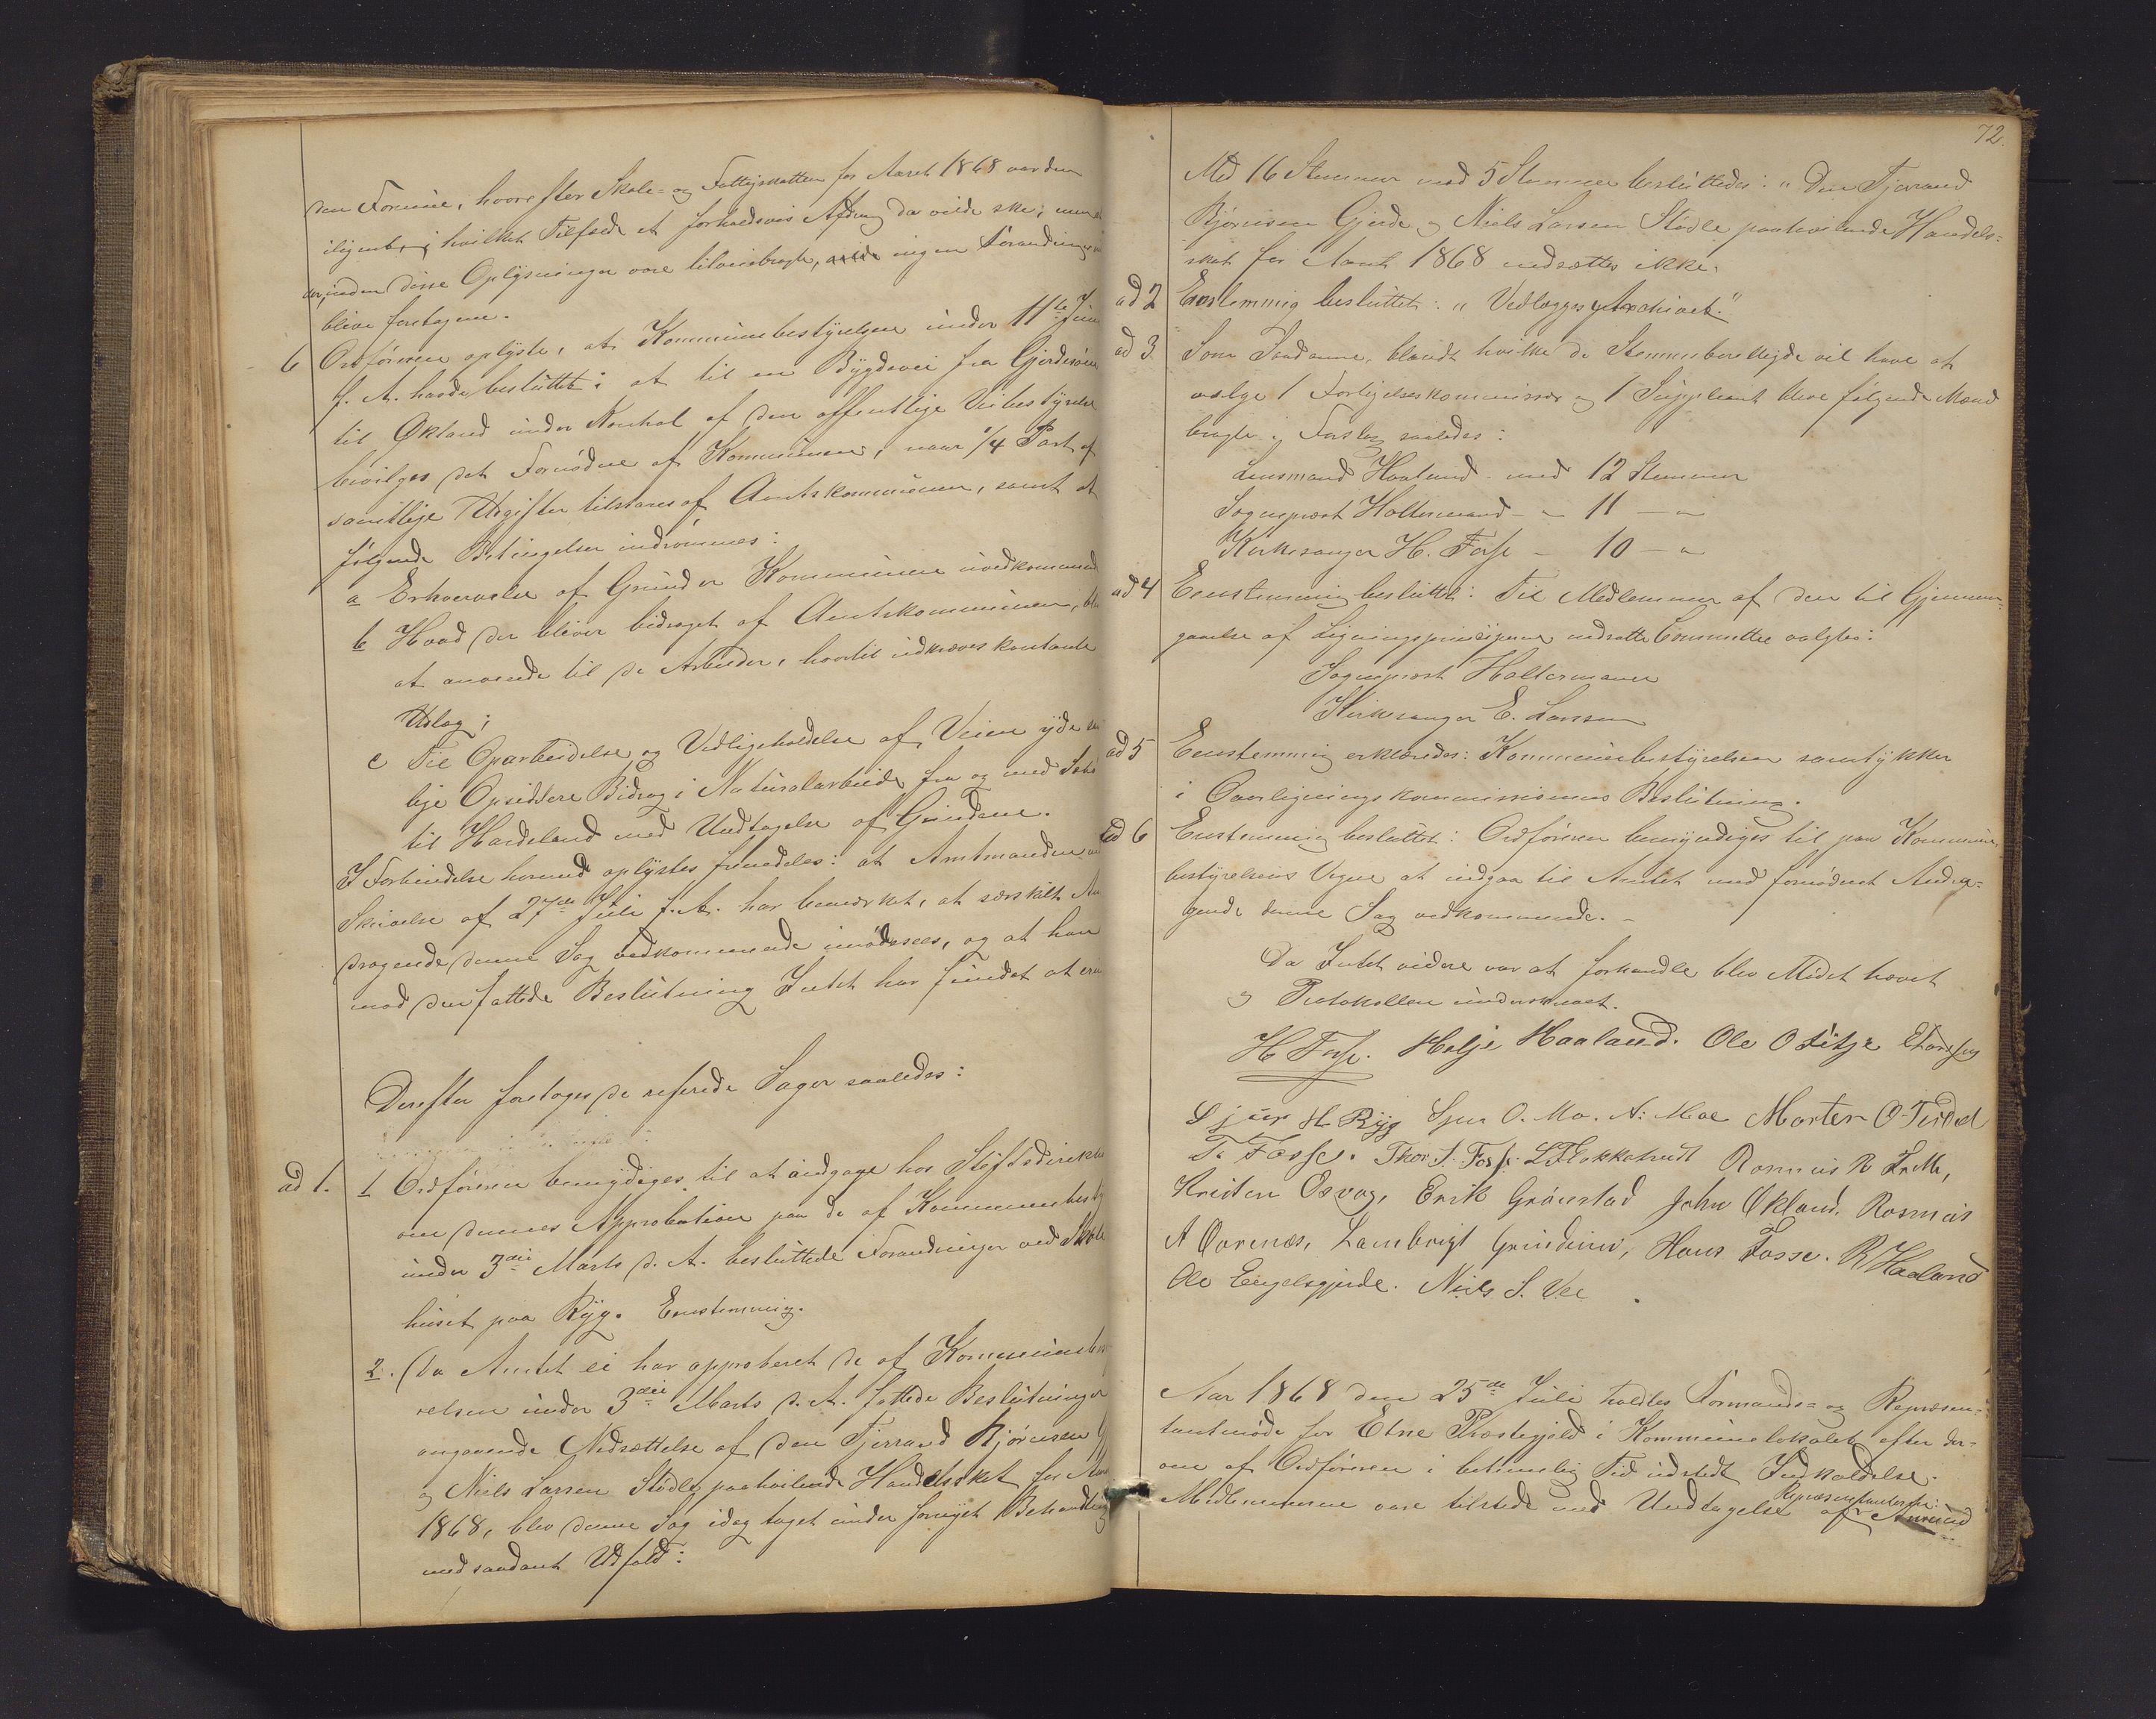 den Formue, hvorefter Skole- og Fattigskatten for Aaret 1868 var dem
ilignet, i hvilket Tilfælde et forholdsvis Afdrag da vilde ske; men
inden disse Oplysninger vare tilveiebragte, ingen Forandring
blive foretagen.
6 Ordføreren oplyste, at Kommunebestyrelsen under 11te Juni
f. A. havde besluttet: at til en Bygdevei fra Gjerdesøen
til Økland under Kontrol af den offentlige Veibestyrelse
bevilges det Fornødne af Kommunen, naar 1/4 Part af
samtlige Udgifter tilstaaes af Amtskommunen, samt at
følgende Betingelser indrømmes:
a Erhvervelse af Grund er Kommunen uvedkommende
b Hvad der bliver bidraget af Amtskommunen,
at anvende til de Arbeider, hvortil udkræves kontante
Udlæg;
c Til Oparbeidelse og Vedligeholdelse af Veien yde
lige Opsiddere Bidrag i Naturalarbeide fra og med
til Hardeland med Undtagelse af Grindene.
I Forbindelse hermed oplystes fremdeles: at Amtmanden
Skrivelse af 27de Juli f. A. har bemærket, at særskilt An
dragende denne Sag vedkommende imødesees, og at han
mod den fattede Beslutning Intet har fundet at
Derefter foretoges de refererede Sager saaledes:
ad 1. 1 Ordføreren bemyndiges til at andgage hos Stiftsdirekti
om dennes Approbation paa de af Kommunebesty
under 3die Marts d. A. besluttede Forandringer ved Skole
huset paa Ryg. Eenstemmig.
2. Da Amtet ei har approberet de af Kommunebesty
relsen under 3die Marts d. A. fattede Beslutninger
angaaende Nedsættelse af den Tjerrand Bjørnsen
og Niels Larsen Stødle paahvilende Handelsskat for Aaret
1868, blev denne Sag idag taget under fornyet Behandling
med saadant Udfald:
72.
Med 16 Stemmer mod 5 Stemmer besluttedes: "Den Tjerrand
Bjørnsen Gjerde og Niels Larsen Stødle paahvilende Handels-
skat for Aaret 1868 nedsættes ikke.
ad 2 Enstemmig besluttet: "Vedlægges Archivet."
ad 3. Som Saadanne, blandt hvilke de Stemmeberettigede vil have at
vælge 1 Forligelseskommissær og 1 Suppleant bleve følgende Mænd
bragte i Forslag saaledes:
Lensmand Haaland med 12 Stemmer
Sognepræst Haltermann - " 11 — "
Kirkesanger H. Fosse - 10 — "
ad 4 Eenstemmig besluttet: Til Medlemmer af den til Gjennem-
gaaelse af Ligningsprincipene nedsatte Committee valgtes:
Sognepræst Haltermann
Kirkesanger E. Larsen
ad 5 Eenstemmig erklæredes: Kommunebestyrelsen samtykker
i Overligningskommissionens Beslutning.
ad 6 Enstemmig besluttet: Ordføreren bemyndiges til paa Kommune-
bestyrelsens Vegne at indgaa til Amtet med fornødent Andra-
gende denne Sag vedkommende. -
Da Intet videre var at forhandle blev Mødet hævet
og Protokollen underskrevet.
H Fosse. Helje Haaland. Ole O Litze E Larsen
Sjur H. Ryg O. Mo. N: Moe Morten O Teidal
T. Fosse. Thor S. Fosse. L Flokketvedt Rasmus R Frette,
Kristen Osvag, Erik Grønstad John Økland. Rasmus
A Qvernæs, Lambrigt Grindeim, Hans Fosse. R Haaland
Ole Engelsgjerde. Niels S. Vee
Aar 1868 den 25de Juli holdtes Formands- og Repræsen-
tantmøde for Etne Præstegjeld i Kommunelokalet efter der-
om af Ordføreren i betimelig Tid udstedt Indkaldelse.
Repræsentanterne:
Medlemmerne vare tilstede med Undtagelse af Amund